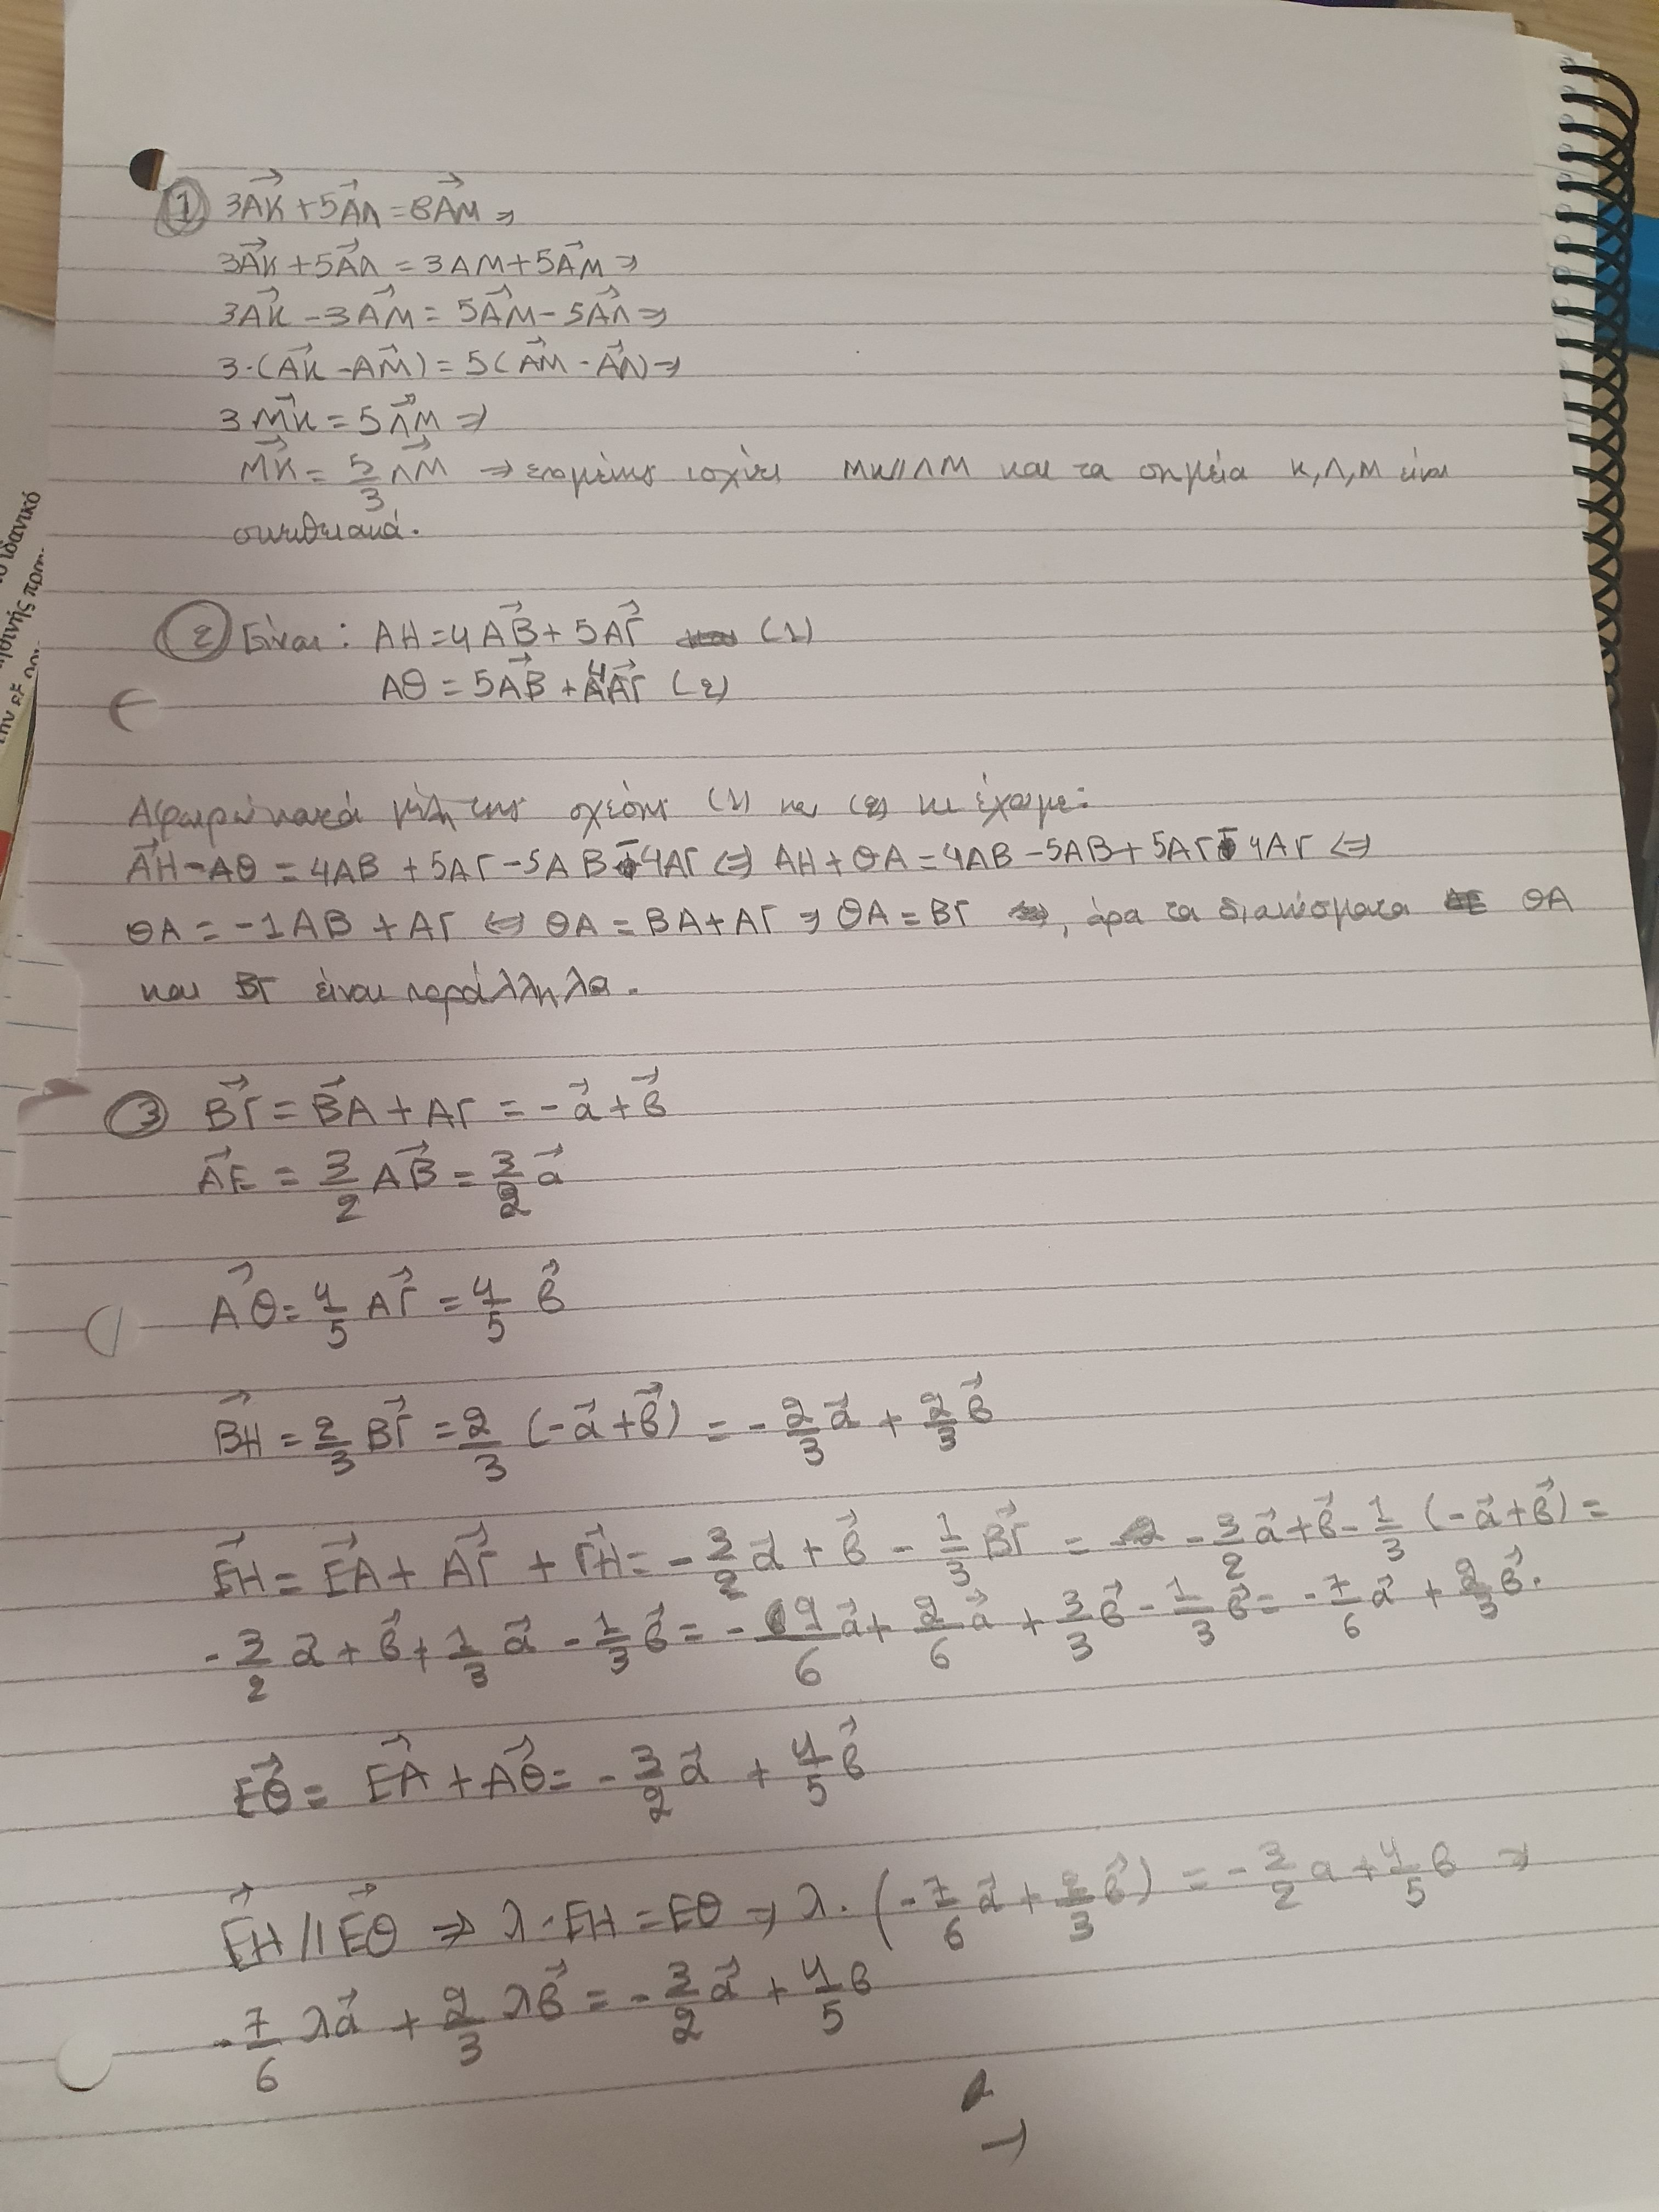 ① 3A͞K + 5AΛ = 8AM ⇒
3AK + 5AΛ = 3AM + 5AM ⇒
3AK - 3AM = 5AM - 5AΛ ⇒
3·(AK - AM) = 5(AM - AΛ) ⇒
3 MK = 5ΛM ⇒
MK = 5/3 ΛM ⇒ επομένως ισχύει MK//ΛM και τα σημεία K,Λ,M είναι
συνευθειακά.
② Είναι: AH = 4AB + 5AΓ (1)
AΘ = 5AB + 4AΓ (2)
Αφαιρώ κατά μέλη τις σχέσης (1) και (2) κι έχουμε:
AH - AΘ = 4AB + 5AΓ - 5AB - 4AΓ ⇔ AH + ΘA = 4AB - 5AB + 5AΓ - 4AΓ ⇔
ΘA = -1AB + AΓ ⇔ ΘA = BA + AΓ ⇒ ΘA = BΓ , άρα τα διανύσματα ΘA
και BΓ είναι παράλληλα.
③ BΓ = BA + AΓ = -a + β
AE = 3/2 AB = 3/2 a
AΘ = 4/5 AΓ = 4/5 β
BH = 2/3 BΓ = 2/3 (-a + β) = -2/3 a + 2/3 β
EH = EA + AΓ + ΓH = -3/2 a + β - 1/3 BΓ = -3/2 a + β - 1/3 (-a + β) =
-3/2 a + β + 1/3 a - 1/3 β = -9/6 a + 2/6 a + 3/3 β - 1/3 β = -7/6 a + 2/3 β.
EΘ = EA + AΘ = -3/2 a + 4/5 β
EH // EΘ ⇒ λ·EH = EΘ ⇒ λ·(-7/6 a + 2/3 β) = -3/2 a + 4/5 β ⇒
-7/6 λa + 2/3 λβ = -3/2 a + 4/5 β
ιδανικό